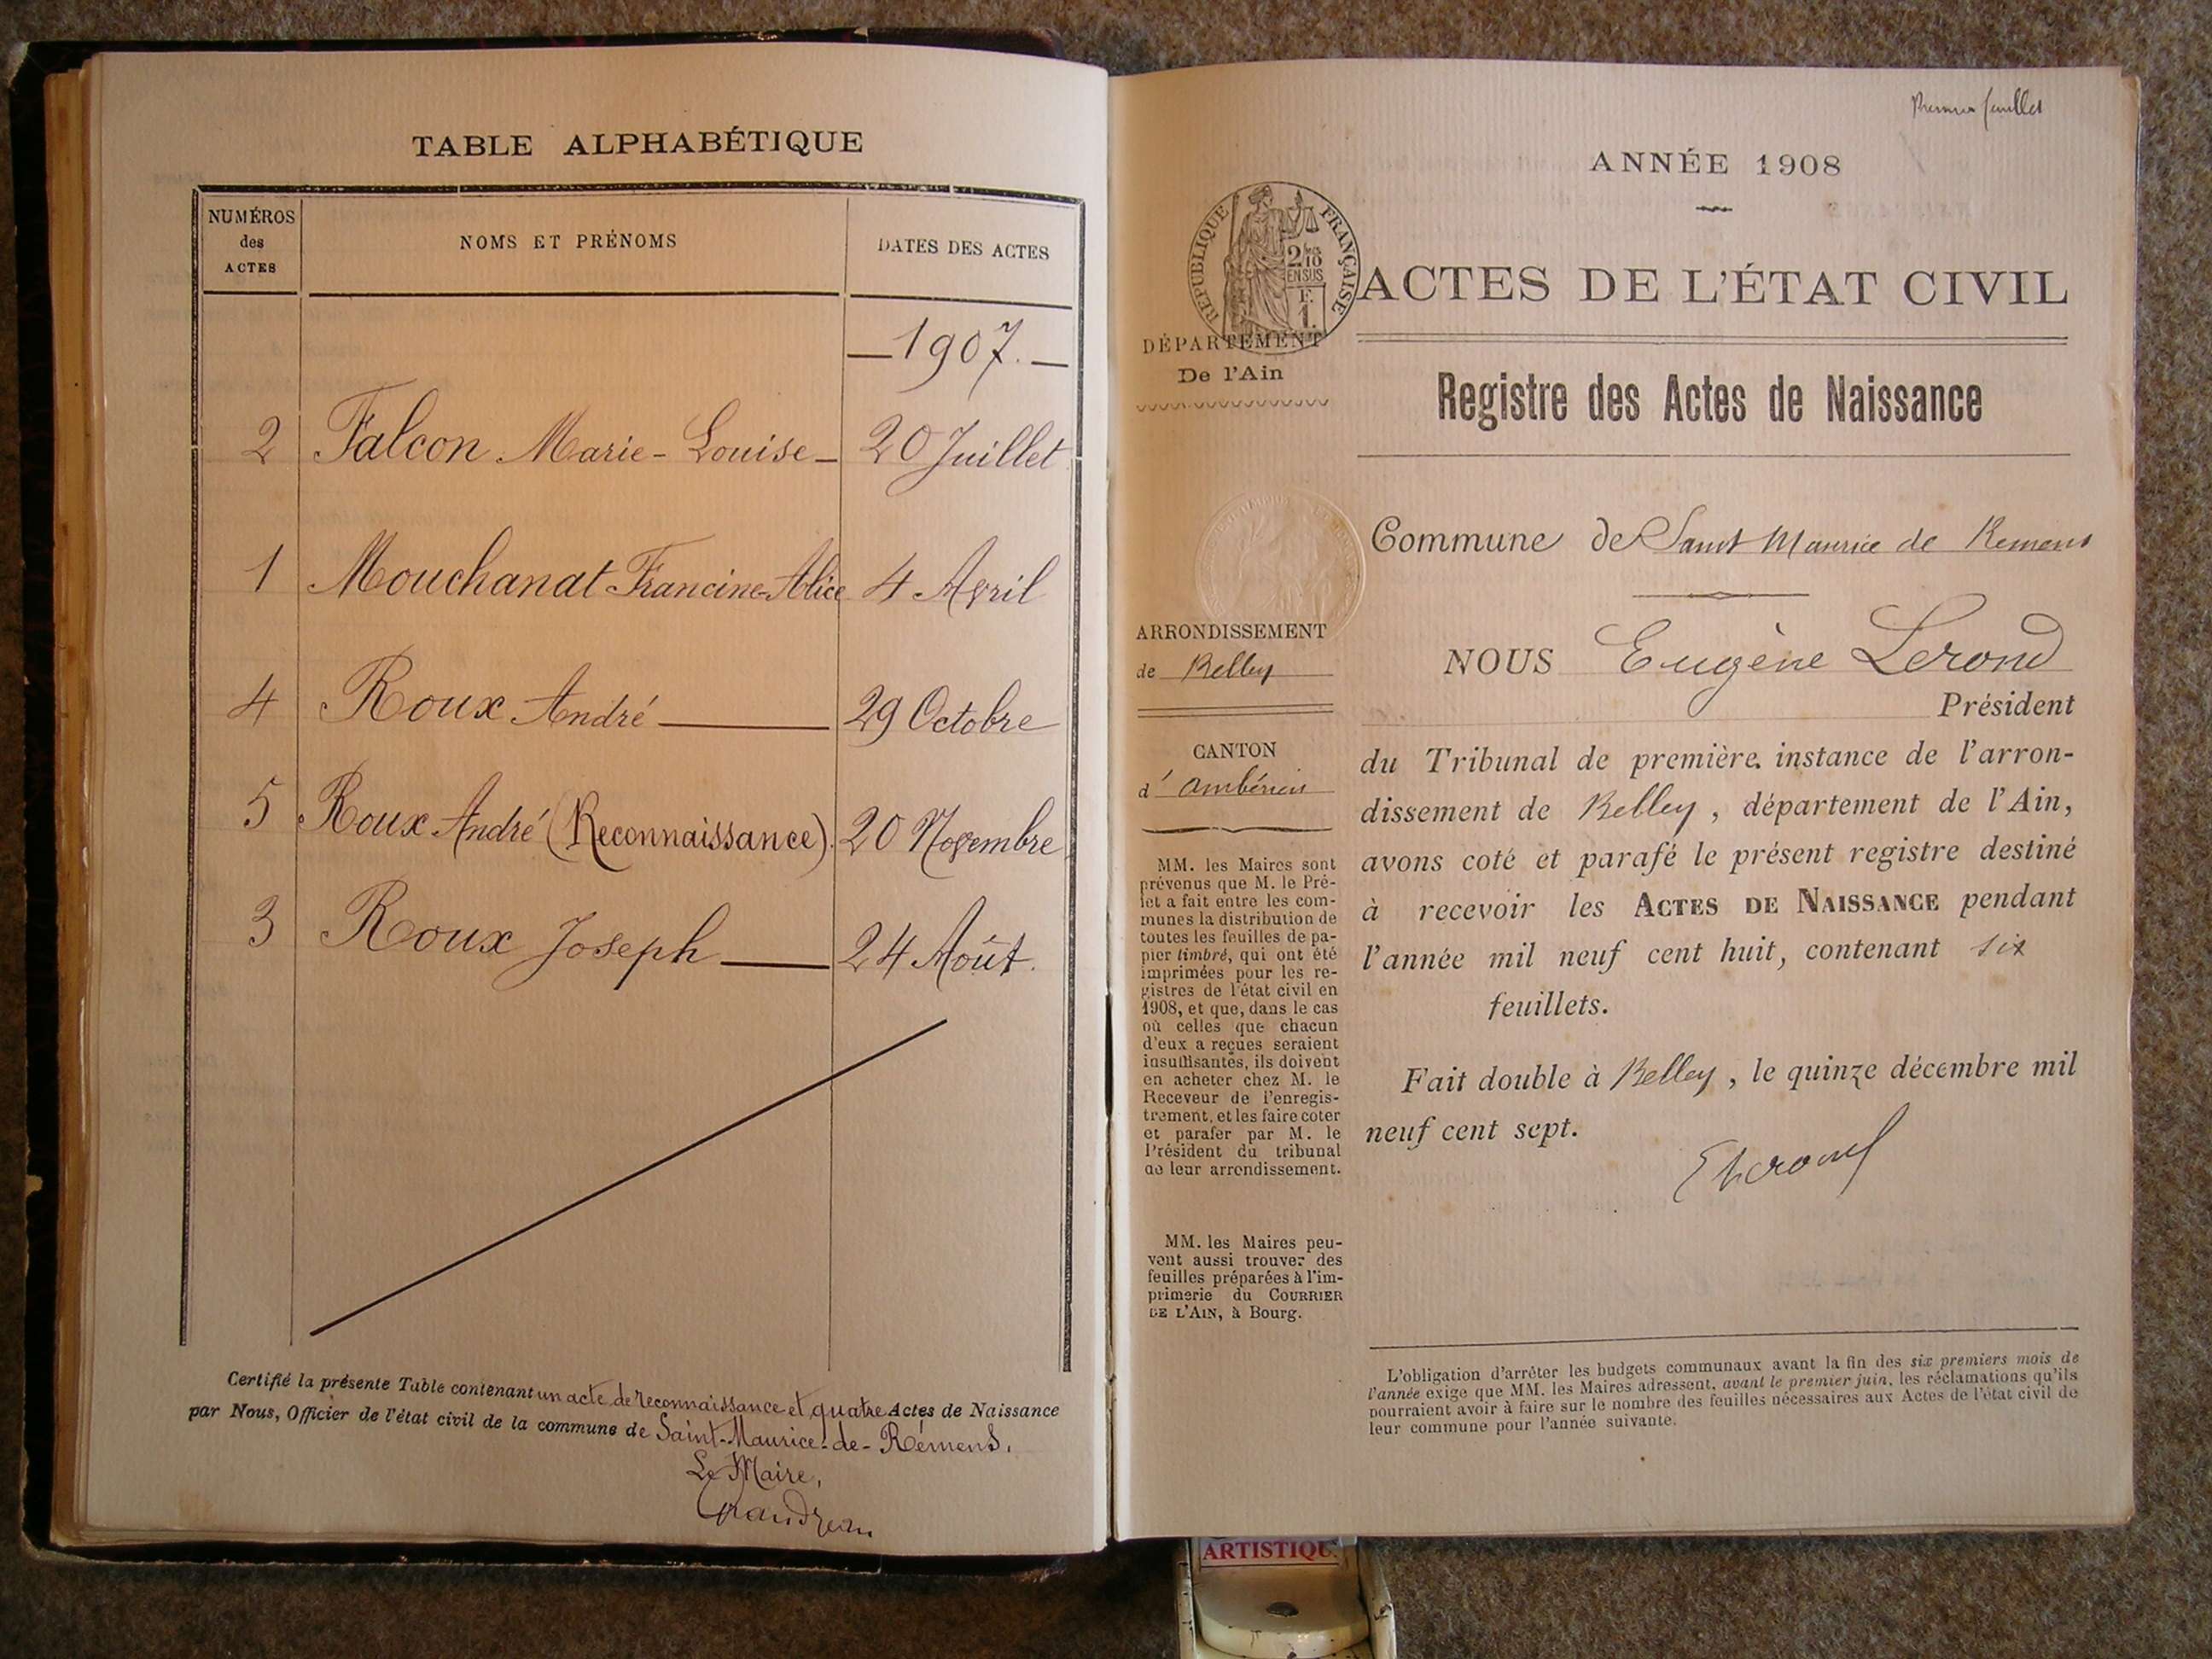 TABLE ALPHABÉTIQUE
NUMÉROS
des
ACTES
NOMS ET PRÉNOMS
DATES DES ACTES
— 1907. —
2 Falcon Marie-Louise — 20 Juillet
1 Mouchanat Francine-Alice 4 Avril
4 Roux André — 29 Octobre
5 Roux André (Reconnaissance). 20 Novembre
3 Roux Joseph — 24 Août.
Certifié la présente Table contenant un acte de reconnaissance et quatre Actes de Naissance
par Nous, Officier de l'état civil de la commune de Saint-Maurice-de-Rémens.
Le Maire,
Grandjean
Premier feuillet
ANNÉE 1908
RÉPUBLIQUE FRANÇAISE
2/10
EN SUS
F.
1.
ACTES DE L'ÉTAT CIVIL
DÉPARTEMENT
De l'Ain
Registre des Actes de Naissance
Commune de Saint Maurice de Remens
ARRONDISSEMENT
de Belley
NOUS Eugène Lerond
Président
CANTON
d' Ambérieu
du Tribunal de première instance de l'arron-
dissement de Belley, département de l'Ain,
avons coté et parafé le présent registre destiné
à recevoir les ACTES DE NAISSANCE pendant
l'année mil neuf cent huit, contenant six
feuillets.
Fait double à Belley, le quinze décembre mil
neuf cent sept.
E Lerond
MM. les Maires sont
prévenus que M. le Pré-
fet a fait entre les com-
munes la distribution de
toutes les feuilles de pa-
pier timbré, qui ont été
imprimées pour les re-
gistres de l'état civil en
1908, et que, dans le cas
où celles que chacun
d'eux a reçues seraient
insuffisantes, ils doivent
en acheter chez M. le
Receveur de l'enregis-
trement, et les faire coter
et parafer par M. le
Président du tribunal
de leur arrondissement.
MM. les Maires peu-
vent aussi trouver des
feuilles préparées à l'im-
primerie du COURRIER
DE L'AIN, à Bourg.
L'obligation d'arrêter les budgets communaux avant la fin des six premiers mois de
l'année exige que MM. les Maires adressent, avant le premier juin, les réclamations qu'ils
pourraient avoir à faire sur le nombre des feuilles nécessaires aux Actes de l'état civil de
leur commune pour l'année suivante.
ARTISTIQU